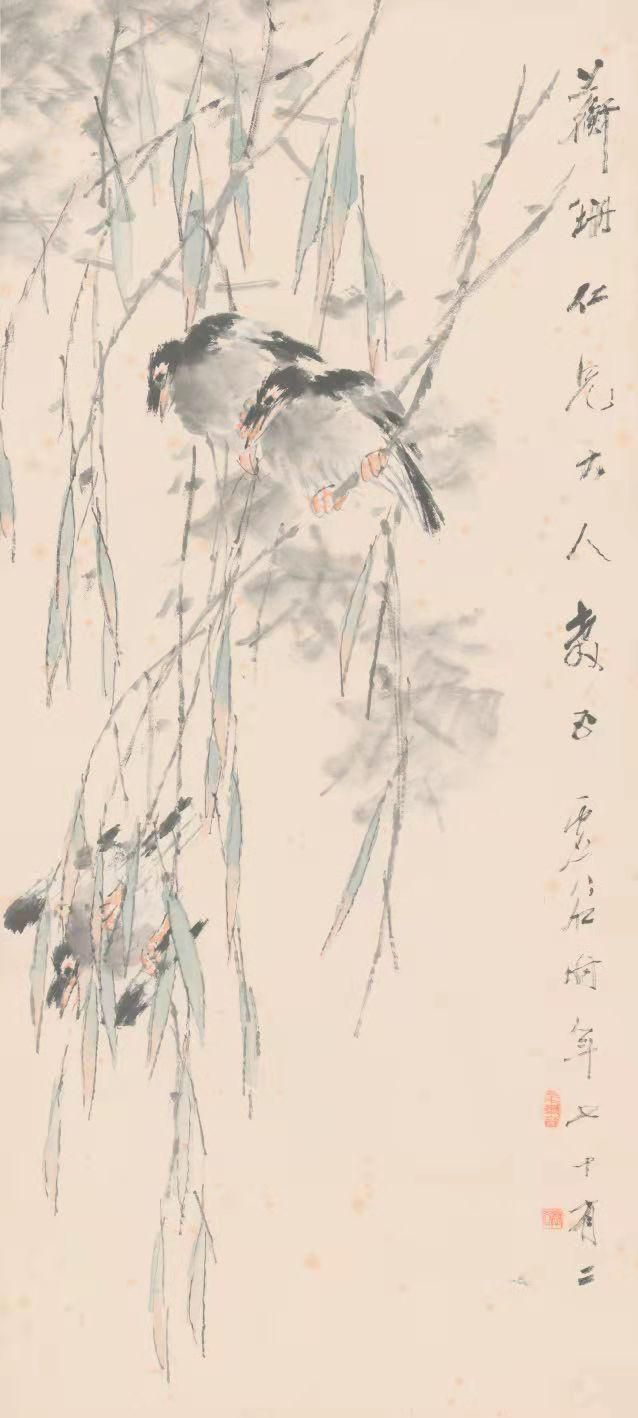 蘅珊仁兄大人教正虛谷時年七十有二